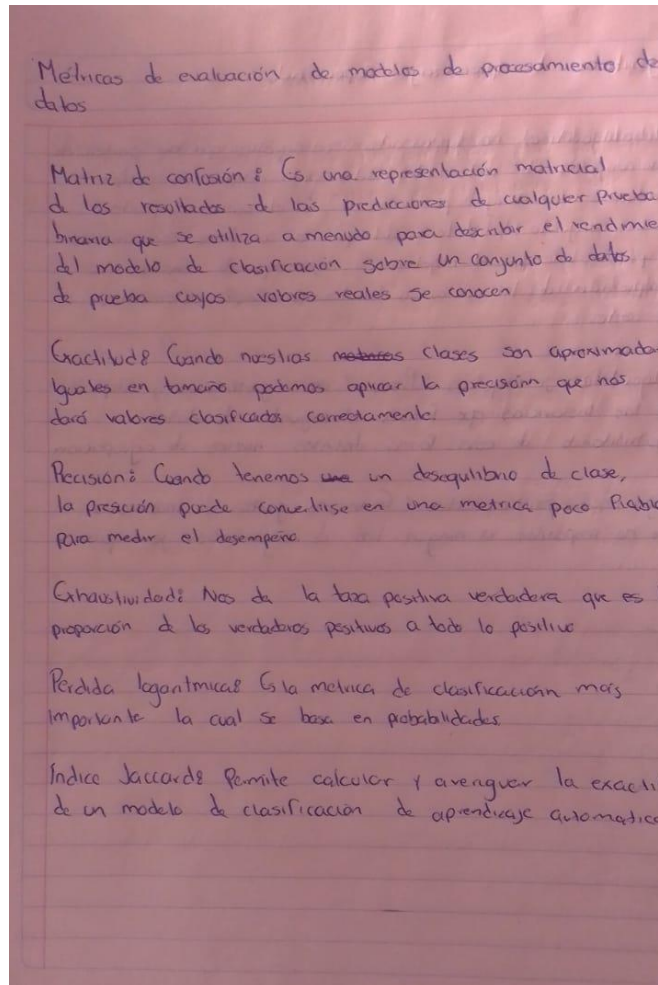 Métricas de evaluación de modelos de procesamiento de
datos
Matriz de confusión: Es una representación matricial
de los resultados de las predicciones de cualquier prueba
binaria que se utiliza a menudo para describir el rendimie
del modelo de clasificación sobre un conjunto de datos
de prueba cuyos valores reales se conocen
Exactitud: Cuando nuestras clases son aproximada
iguales en tamaño podemos aplicar la precisión que nos
dará valores clasificados correctamente.
Precisión: Cuando tenemos un desequilibrio de clase,
la presción puede convertirse en una metrica poco fiable
para medir el desempeño
Exhaustividad: Nos da la taza positiva verdadera que es
proporción de los verdaderos positivos a todo lo positivo
Perdida logaritmica: Es la metrica de clasificación mas
importante la cual se basa en probabilidades
Índice Jaccard: Permite calcular y averiguar la exacti
de un modelo de clasificación de aprendizaje automatico